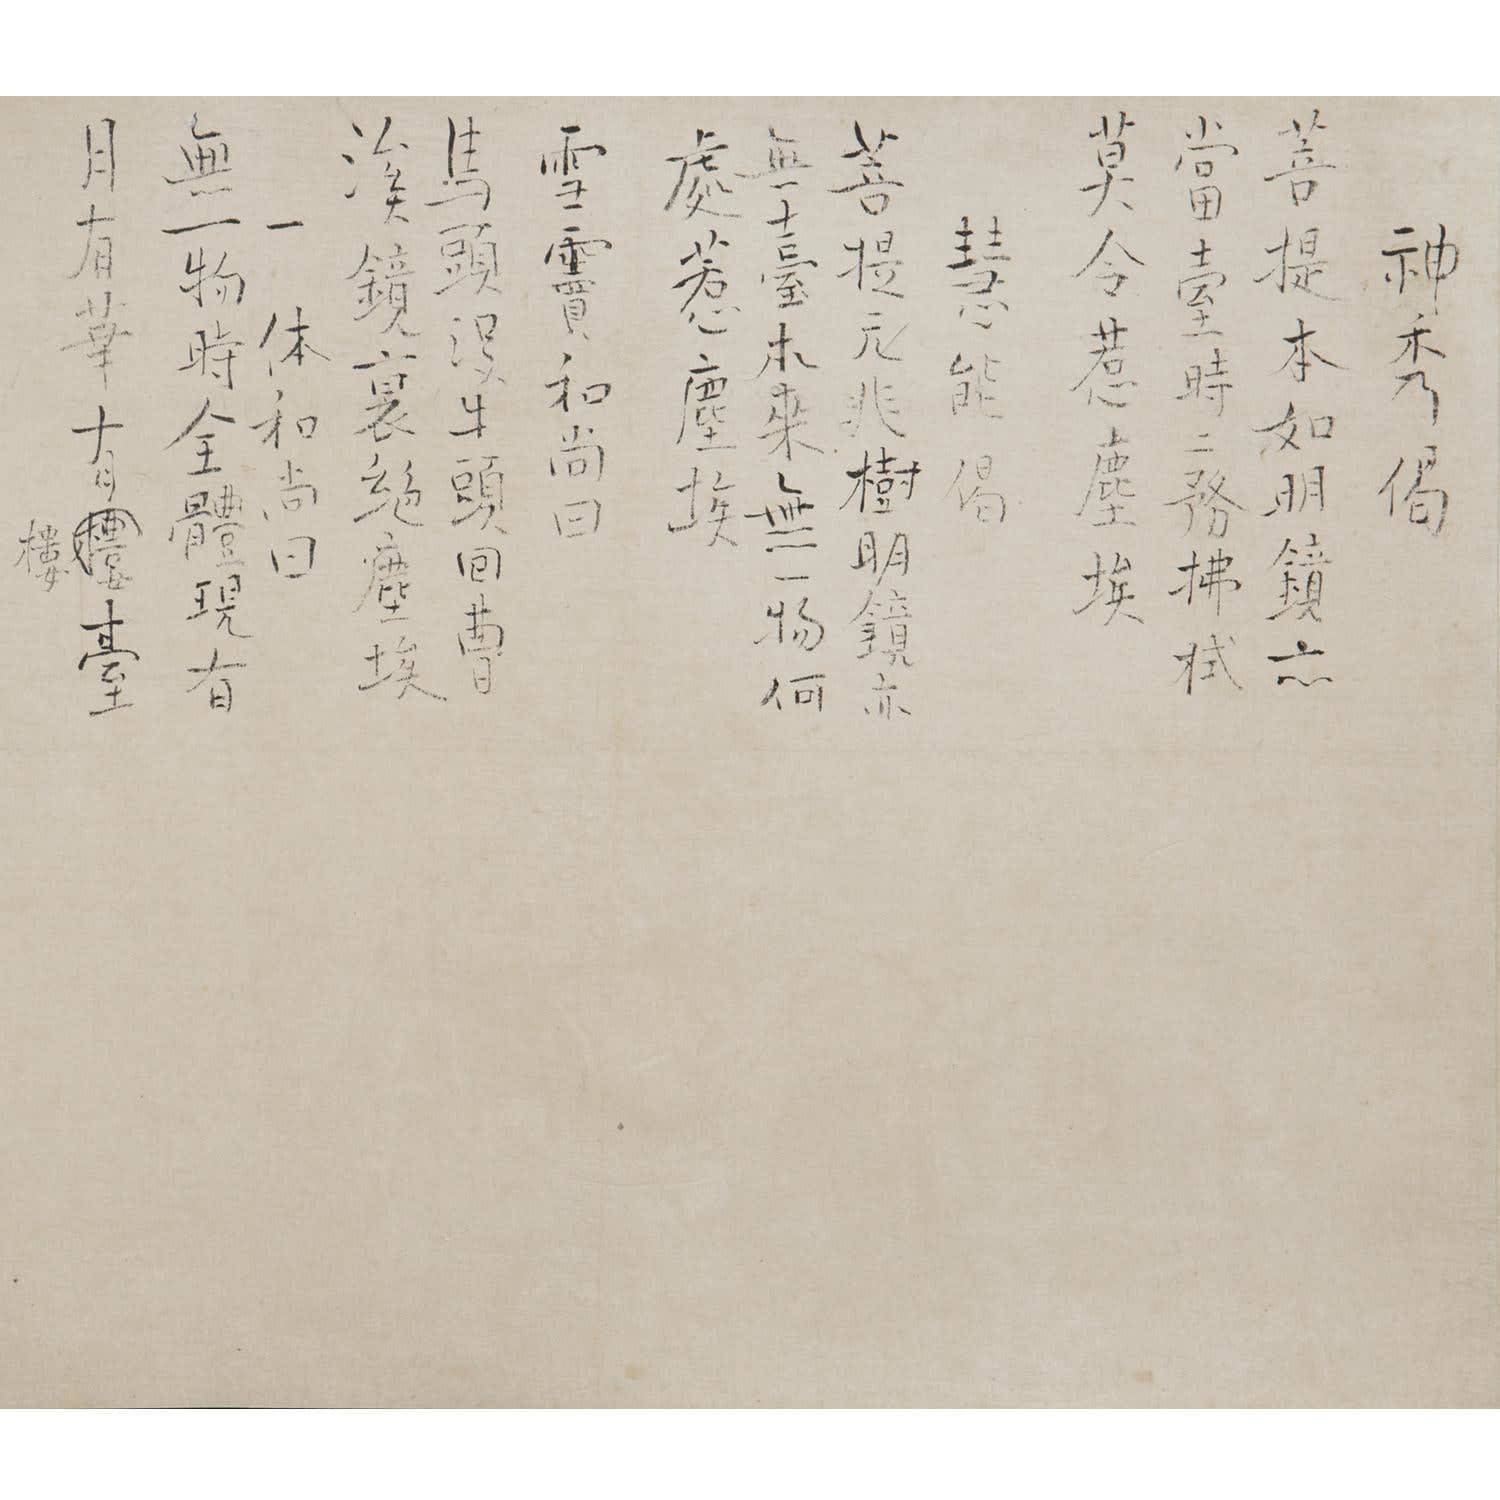 神秀偈
菩提本如明鏡亦
當臺時〻務拂拭
莫令惹塵埃
慧能偈
菩提元非樹明鏡亦
無臺本來無一物何
處惹塵埃
雪竇和尚曰
馬頭没牛頭回曹
溪鏡裏絶塵埃
一体和尚曰
無一物時全體現有
月有華有樓臺
樓